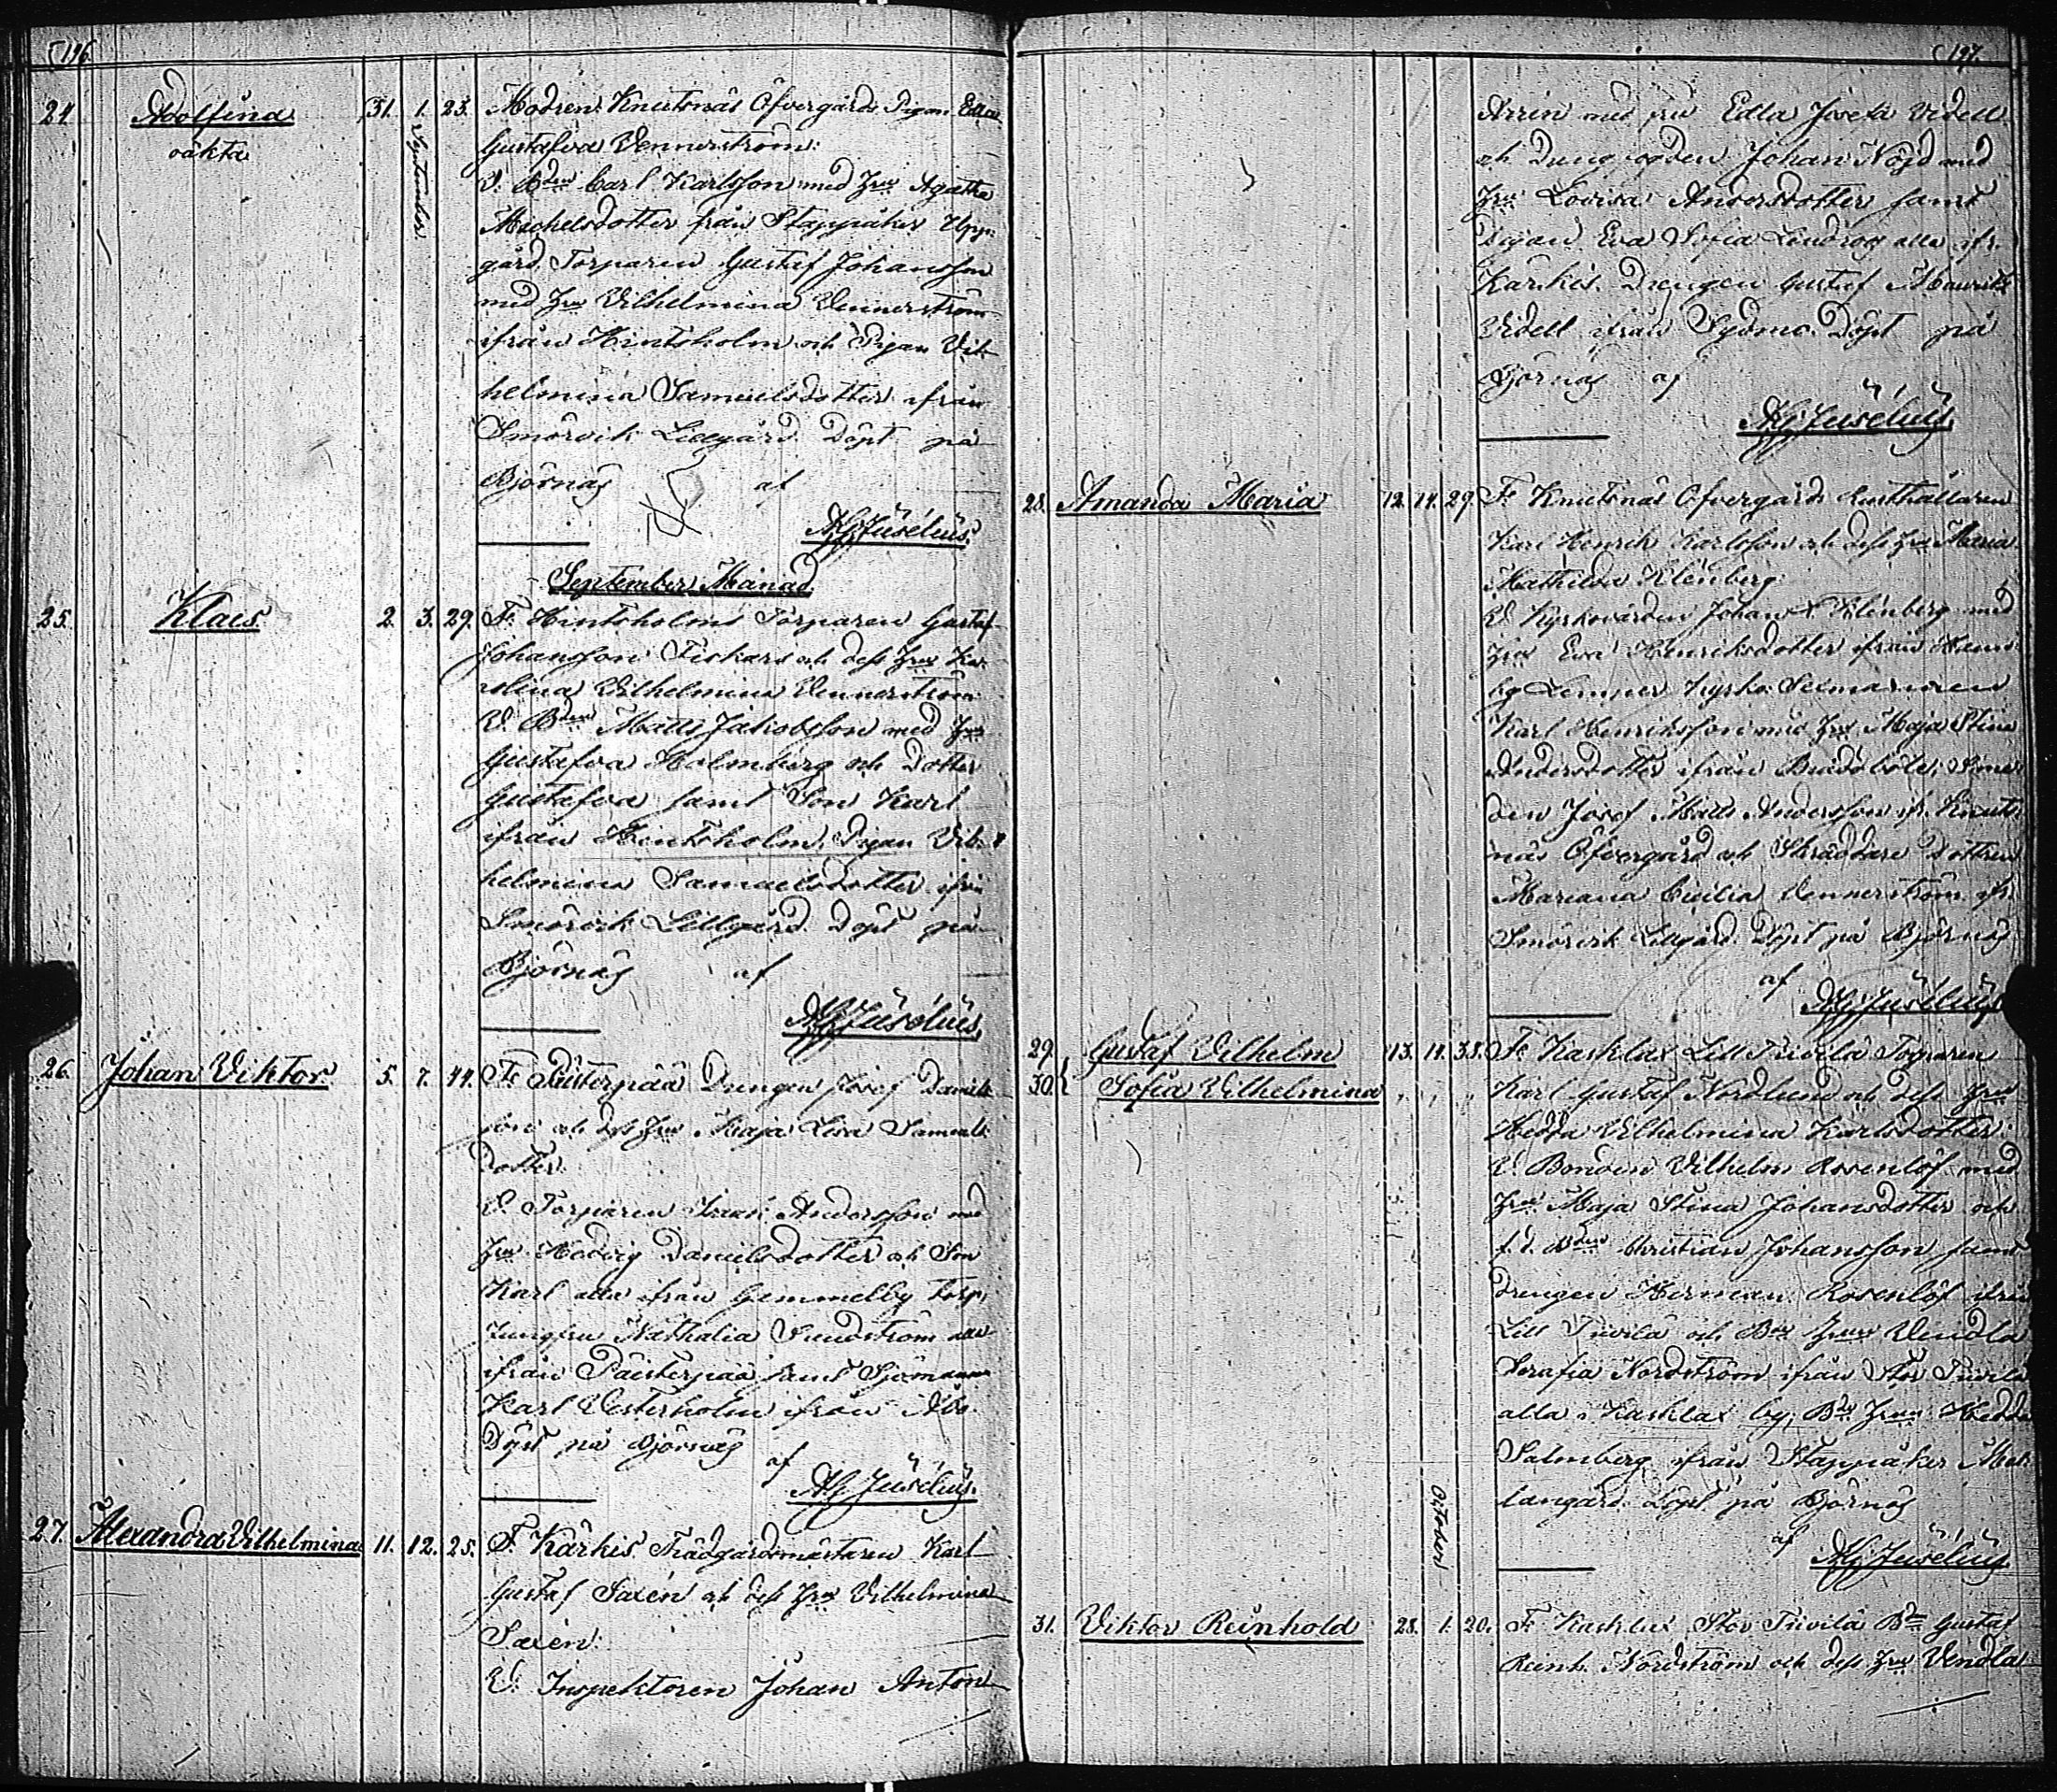 196.
24. Adolfina 31. 1. 23. Modren: Knutsnäs Öfvergårds Pigan Edla
oäkta
September
Gustafva Vennerström:
V. Bden Carl Karlsson med Hru Agatha
Michelsdotter från Stappåker Upp-
gård. Torparen Gustaf Johansson
med Hru Vilhelmina Vennerström
ifrån Hintsholm och Pigan Vil-
helmina Samuelsdotter ifrån
Smörvik Lillgård. Döpt på
Björnäs af
Juselius.
September Månad
25. Klaes 2. 3. 29. Fr. Hintsholms Torparen Gustaf
Johansson Fiskars och dess Hru Ka-
rolina Vilhelmina Vennerström
V. Bden Matts Jakobsson med Hru
Gustafva Holmberg och Dotter
Gustafva samt Son Karl
ifrån Hintsholm. Pigan Vil-
helmina Samuelsdotter ifrån
Smörvik Lillgård. Döpt på
Björnäs af
Juselius.
26. Johan Viktor 5. 7. 44. Fr. Päisterpää Drengen Josef Daniels-
son och dess Hru Maja Lisa Samuels-
dotter.
V. Torparen Isaac Andersson med
Hru Hedvig Danielsdotter och Son
Karl alla ifrån Gemmelby torp,
Jungfru Nathalia Sundström
ifrån Päisterpää samt Sjöman
Karl Vesterholm ifrån Åbo.
Döpt på Björnäs
af
Juselius.
27. Alexandra Vilhelmina 11. 12. 25. Fr. Kärkis Trädgårdsmästaren Karl
Gustaf Saxén och dess Hru Vilhelmina
Saxén:
V. Inspektoren Johan Anton
197.
med fru Edla Josefa Videll
och Johan Nöjd med
Hru Lovisa Andersdotter samt
Pigan Eva Sofia alla ifr.
Kärkis. Drengen Gustaf Maurits
Videll ifrån Sydmo. Döpt på
Björnäs af
Juselius.
28. Amanda Maria 12. 14. 29. Fr. Knutsnäs Öfvergårds Rusthållaren
Karl Henrik Karlsson och dess Hru Maria
Mathilda Klénberg:
V. Kyrkovärden Johan Klénberg med
Hru Eva Henriksdotter ifrån
by Lempers kyrko. Seemannen
Karl Henriksson med Hru Maja Stina
Andersdotter ifrån Bussböle; Sme-
den Josef Matts Andersson ifr. Knuts-
näs Öfvergård och Skräddare Dottren
Mariana Cecilia Vennerström ifr.
Smörvik Lillgård. Döpt på Björnäs
af
Juselius
29. Gustaf Vilhelm 13. 14. 38. Fr. Kasklax Lill Tuvila Torparen
30. Sofia Vilhelmina " " " Karl Gustaf Nordlund och dess Hru
Hedda Vilhelmina Karlsdotter:
V. Bonden Vilhelm Rosenlöf med
Hru Maja Stina Johansdotter och
f. d. Bden Christian Johansson samt
Drengen Herman Rosenlöf ifrån
Lill Tuvila och Bde Hrun Vendla
Serafia Nordström ifrån Stor Tuvila
alla i Kasklax by; Bde Hrun Hedda
Salmberg ifrån Stappåker Mel-
langård. Döpt på Björnäs
af
Juselius
October
31. Viktor Reinhold 28. 1. 20. Fr. Kasklax Stor Tuvila Bn Gustaf
Reinh. Nordström och dess Hru Vendla